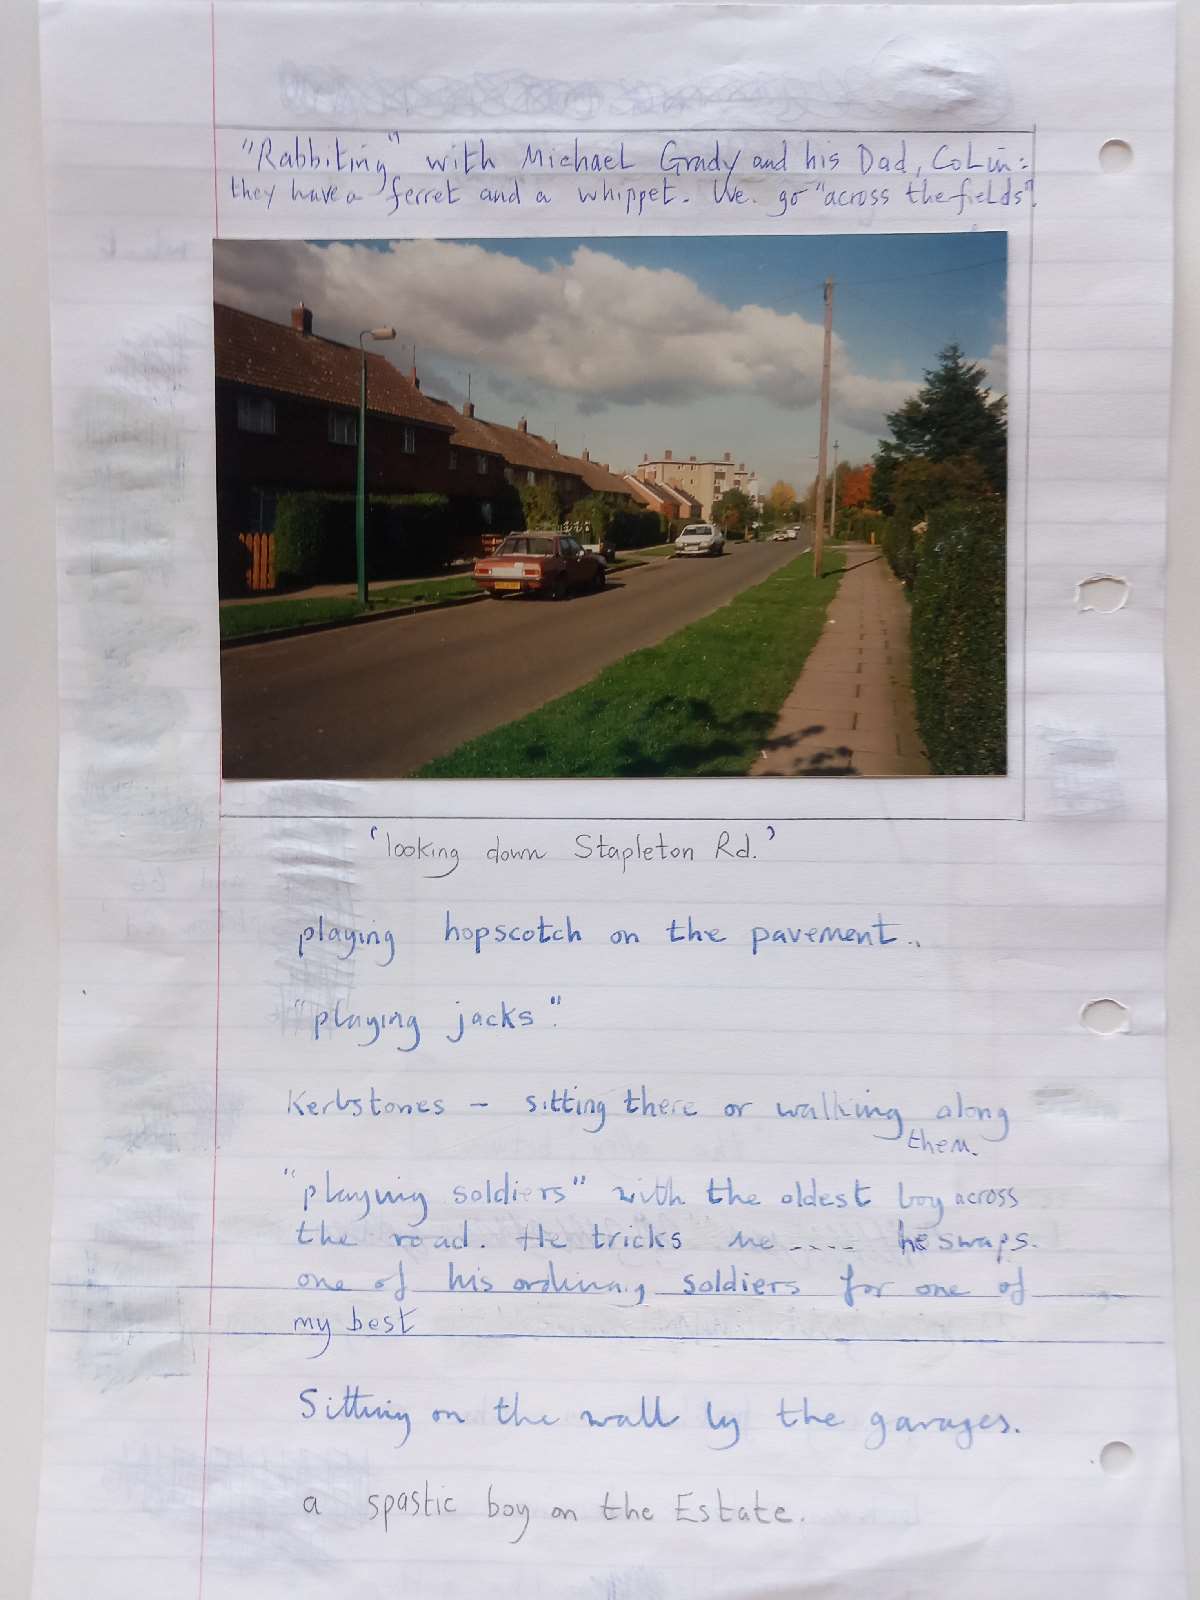 "Rabbiting" with Michael Grady and his Dad, Colin:
they have a ferret and a whippet. We go "across the fields".
'looking down Stapleton Rd.'
playing hopscotch on the pavement..
"playing jacks".
Kerbstones – sitting there or walking along
them.
"playing soldiers" with the oldest boy across
the road. He tricks me .... he swaps.
one of his ordinary soldiers for one of
my best
Sitting on the wall by the garages.
a spastic boy on the Estate.